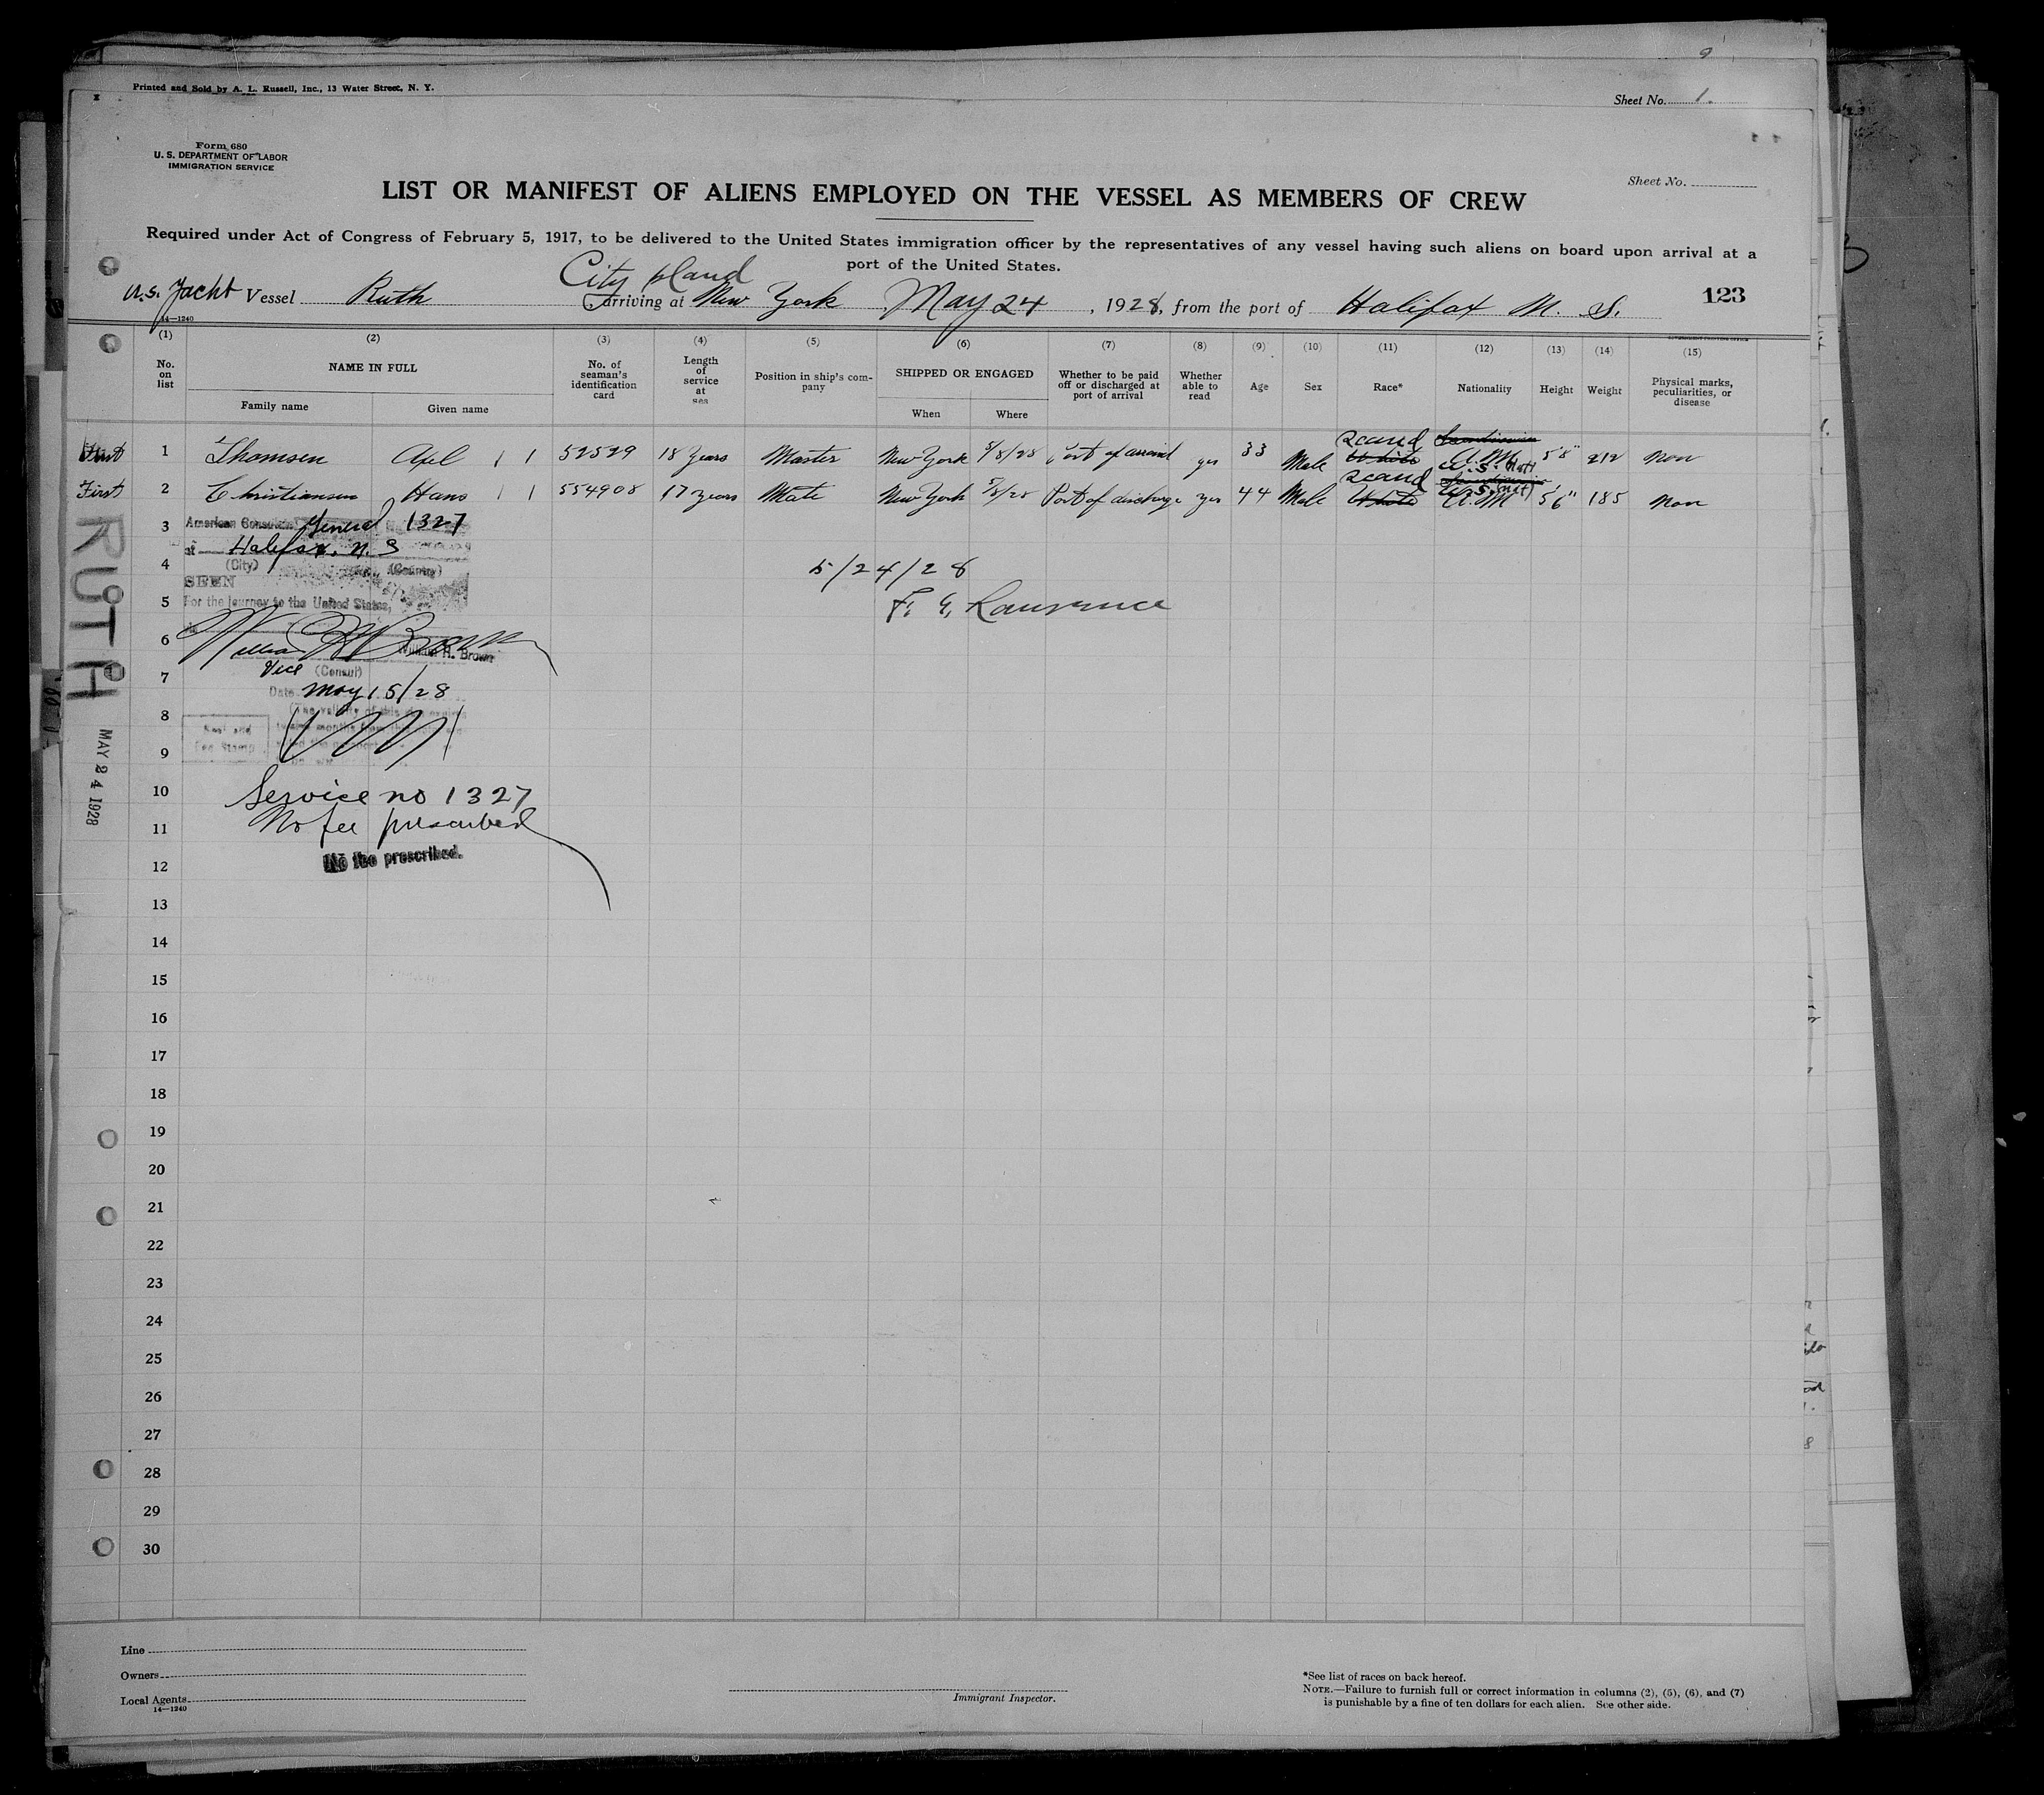 9
Printed and Sold by A. L. Russell, Inc., 13 Water Street, N. Y.
Sheet No. 1.
Form 680
U. S. DEPARTMENT OF LABOR
IMMIGRATION SERVICE
Sheet No.
LIST OR MANIFEST OF ALIENS EMPLOYED ON THE VESSEL AS MEMBERS OF CREW
Required under Act of Congress of February 5, 1917, to be delivered to the United States immigration officer by the representatives of any vessel having such aliens on board upon arrival at a
port of the United States.
City Island
U.S. Yacht Vessel Ruth arriving at New York May 24, 1928, from the port of Halifax N. S. 123
14—1240
(1) (2) (3) (4) (5) (6) (7) (8) (9) (10) (11) (12) (13) (14) (15)
No. on list
NAME IN FULL
Family name
Given name
No. of seaman's identification card
Length of service at sea
Position in ship's company
SHIPPED OR ENGAGED
When
Where
Whether to be paid off or discharged at port of arrival
Whether able to read
Age
Sex
Race*
Nationality
Height
Weight
Physical marks, peculiarities, or disease
First 1 Thomsen Axel 52529 18 Years Master New York 5/8/28 Port of arrival yes 33 Male Scand White U.S. Nat 5'8" 212 Non
First 2 Christiansen Hans 554908 17 years Mate New York 5/8/28 Port of discharge yes 44 Male Scand White U.S. (Nat) 5'6" 185 Non
3 American Consulate General 1327
at Halifax, N. S
4 (City) (Country)
5/24/28
SEEN
5 For the journey to the United States,
F. G. Lawrence
6 William H. Brown
Vice (Consul)
7 Date May 15/28
8
9
10 Service no 1327
11 No fee prescribed
12 No fee prescribed.
13
14
15
16
17
18
19
20
21
22
23
24
25
26
27
28
29
30
RUTH
MAY 24 1928
Line
Owners
Local Agents
14—1240
Immigrant Inspector.
*See list of races on back hereof.
NOTE.—Failure to furnish full or correct information in columns (2), (5), (6), and (7)
is punishable by a fine of ten dollars for each alien. See other side.